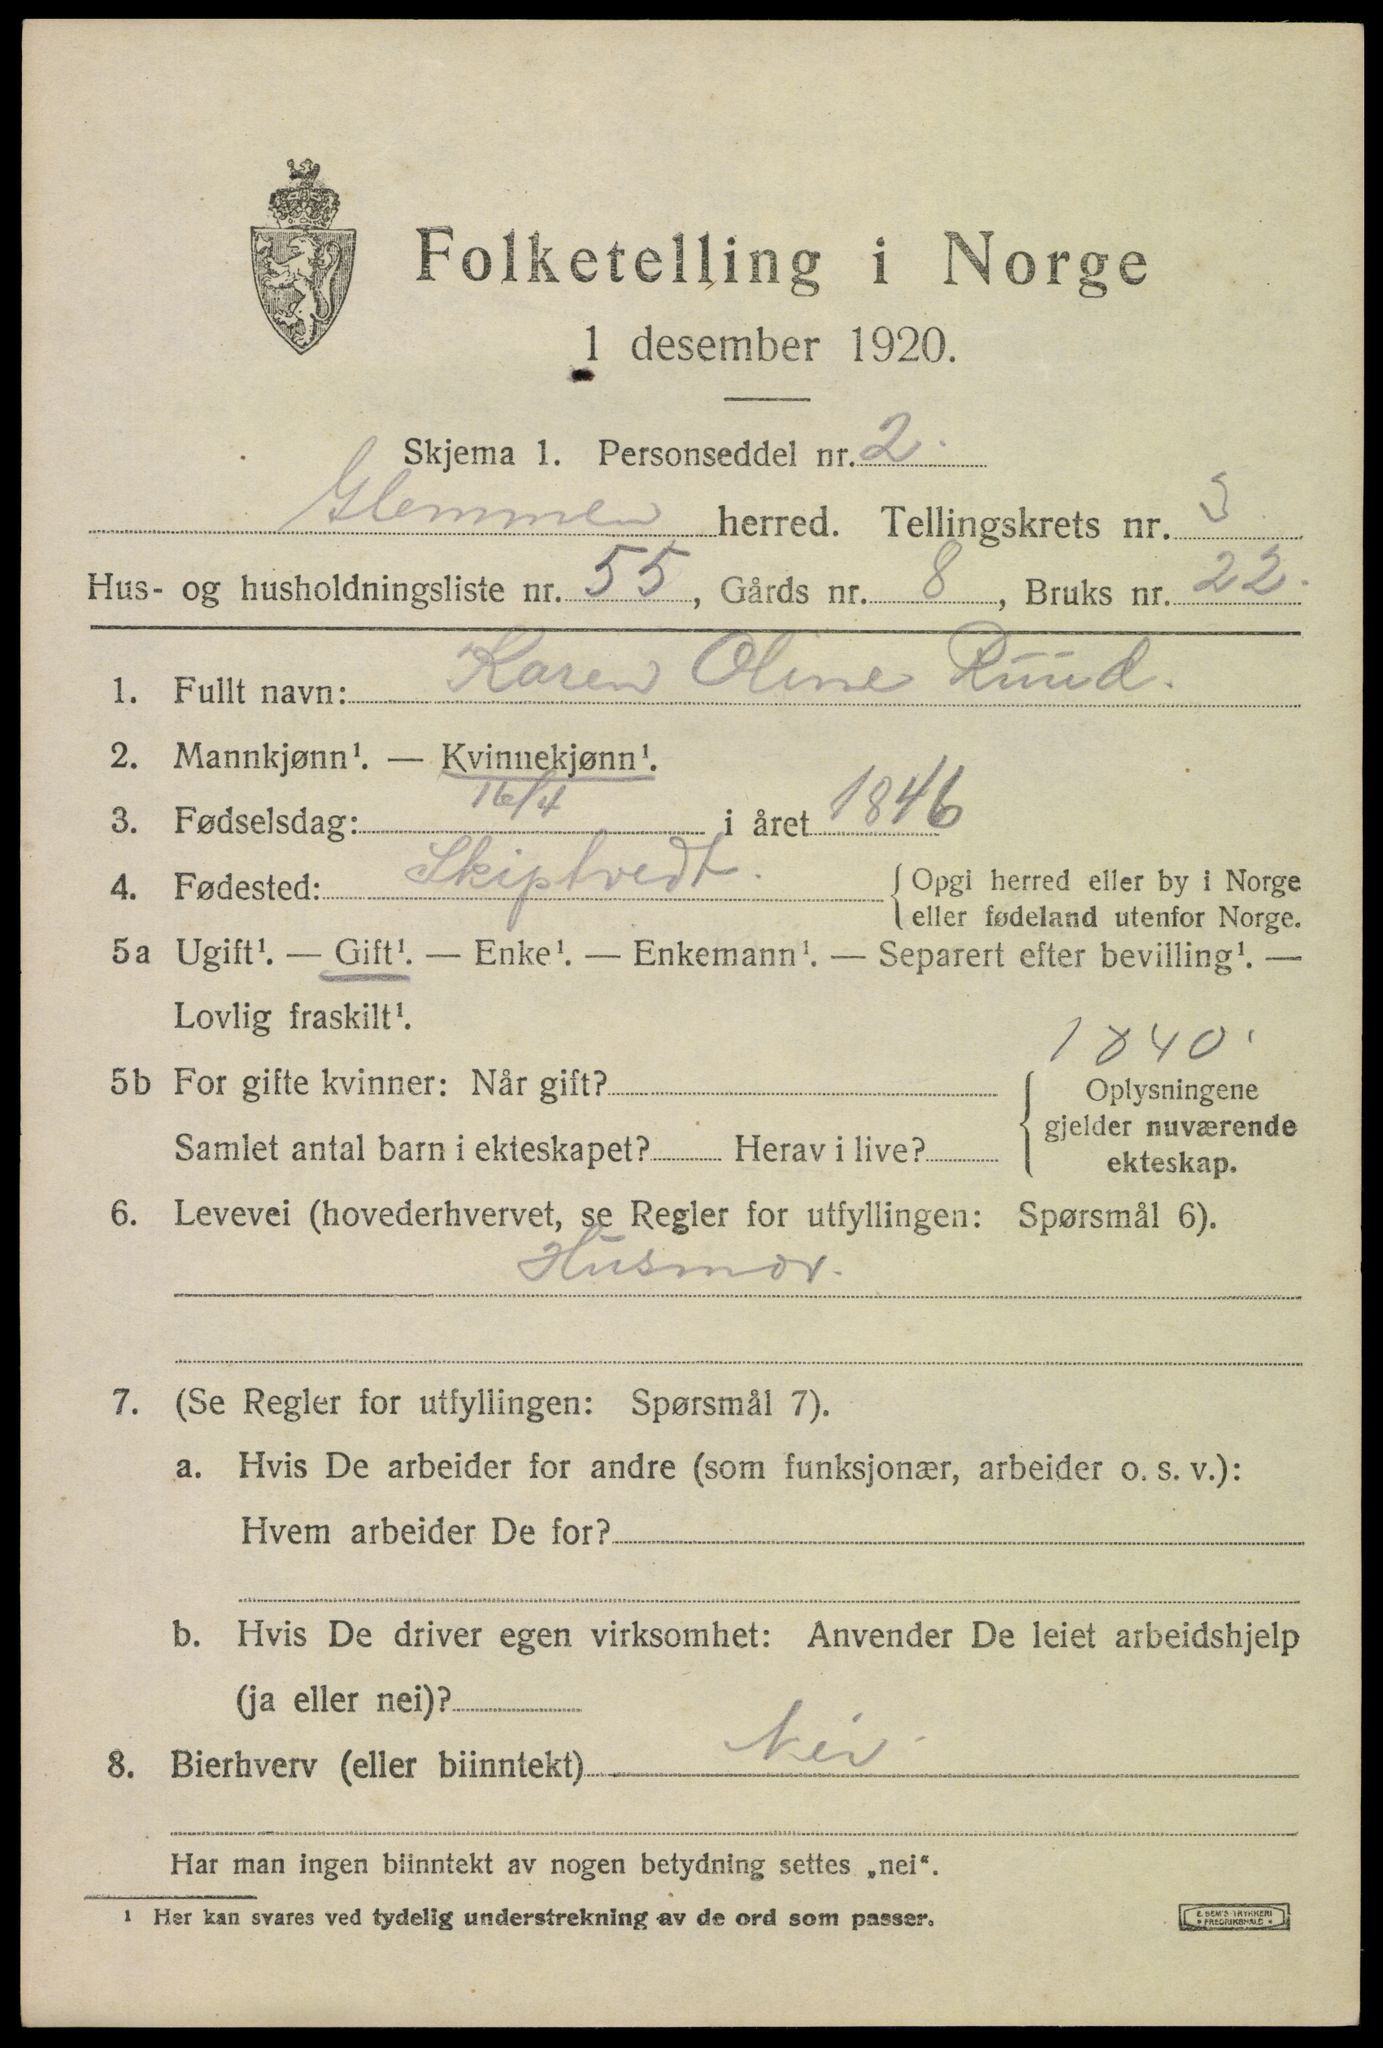 Folketelling i Norge
1 desember 1920.
Skjema 1. Personseddel nr. 2.
Glemmen herred. Tellingskrets nr. 3
Hus- og husholdningsliste nr. 55, Gårds nr. 8, Bruks nr. 22.
1. Fullt navn: Karen Oline Ruud.
2. Mannkjønn¹. — Kvinnekjønn¹.
3. Fødselsdag: 16/4 i året 1846
4. Fødested: Skiptvedt. { Opgi herred eller by i Norge
eller fødeland utenfor Norge.
5a Ugift¹. — Gift¹. — Enke¹. — Enkemann¹. — Separert efter bevilling¹. —
Lovlig fraskilt¹.
1840.
5b For gifte kvinner: Når gift? { Oplysningene
gjelder nuværende
Samlet antal barn i ekteskapet? Herav i live? ekteskap.
6. Levevei (hovederhvervet, se Regler for utfyllingen: Spørsmål 6).
Husmor.
7. (Se Regler for utfyllingen: Spørsmål 7).
a. Hvis De arbeider for andre (som funksjonær, arbeider o. s. v.):
Hvem arbeider De for?
b. Hvis De driver egen virksomhet: Anvender De leiet arbeidshjelp
(ja eller nei)?
8. Bierhverv (eller biinntekt) Nei.
Har man ingen biinntekt av nogen betydning settes „nei“.
¹ Her kan svares ved tydelig understrekning av de ord som passer.
E. SEM'S TRYKKERI
* FREDRIKSHALD *